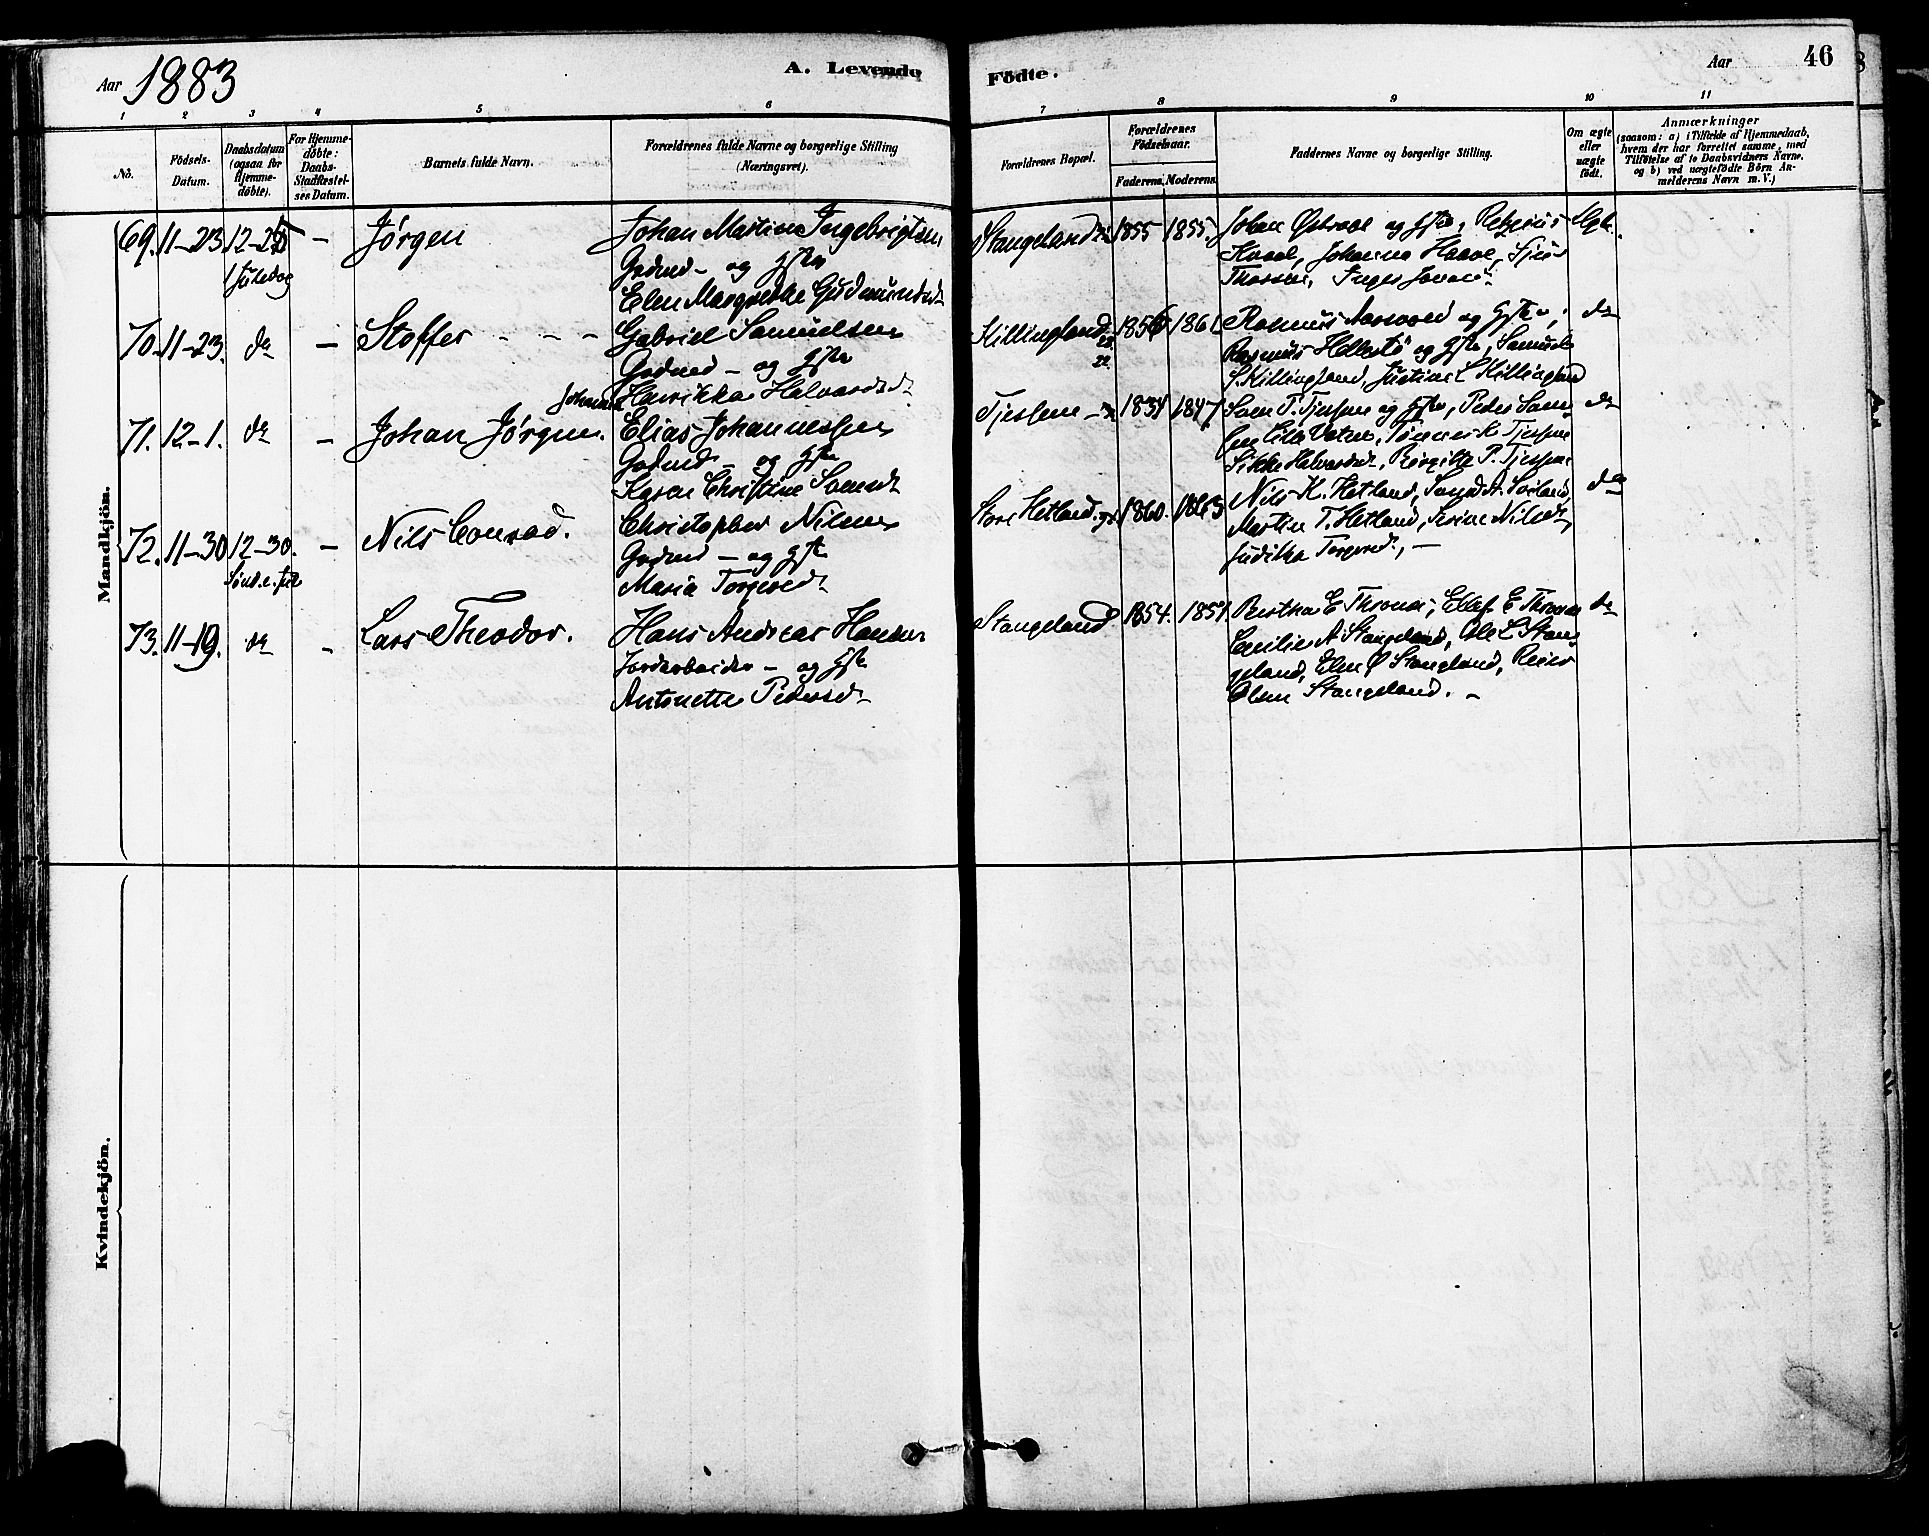 Aar 1883
A. Levende Födte.
Aar 46
1 2 3 4 5 6 7 8 9 10 11
No.
Födsels-Datum.
Daabsdatum (ogsaa for Hjemme-döbte).
For Hjemme-döbte: Daabs-Stadfæstel-ses Datum.
Barnets fulde Navn.
Forældrenes fulde Navne og borgerlige Stilling (Næringsvei).
Forældrenes Bopæl.
Forældrenes Födselsaar.
Faderens. Moderens.
Faddernes Navne og borgerlige Stilling.
Om ægte eller uægte födt.
Anmærkninger
(saasom: a) i Tilfælde af Hjemmedaab,
hvem der har forrettet samme, med
Tilföielse af to Daabsvidners Navne,
og b) ved uægtefödte Börn An-
melderens Navn m. V.)
Mandkjön.
69. 11-23 12-25 - Jørgen
1 Juledag
Johan Martin Ingebrigtsen
Gadmd - og Hstr
Elen Margrethe Gudmundsd.
Stangeland 1855 1855.
Johan Østraat og Hstr,
Kvaal, Johanna Haave,
70. 11-23. do - Stoffer - - -
Gabriel Samuelsen
Gadmd - og Hstr
Henrikka Halvardsd.
Killingland 1856 1861
Rasmus Aarsvold og Hstr,
Rasmus Hellestø og Hstr, Samuel
S. Killingland, Justine L Killingland
do
71. 12-1. do - Johan Jørgen.
Elias Johannessen
Gadmd - og Hstr
Karen Christine Samsd.
Tjessem 1834 1847
Sven T. Tjessem og Hstr, Peder Sam-
sen Lille Vatne, Tønnes K. Tjessem
Sikke Halvardsd., Birgitte P. Tjessem
do
72. 11-30 12-30. - Nils Conrad.
Sønd. e. Jul
Christopher Nilsen
Gadmd - og Hstr
Maria Torgersd.
Store Hetland 1860. 1863
Nils K. Hetland,
Martin T. Hetland, Serine Nilsd.,
Juditha Torgersd., -
do
73. 11-19. do - Lars Theodor.
Hans Andreas Hansen
Jordarbeider - og Hstr
Antonette Pedersd.
Stangeland 1854. 1857.
Bertha E Thronæs, Ellef E Thronæs
Emilie A Stangeland, Ole L Stan-
geland, Elen Ø Stangeland, Reier
Olsen Stangeland. -
do
Kvindekjön.